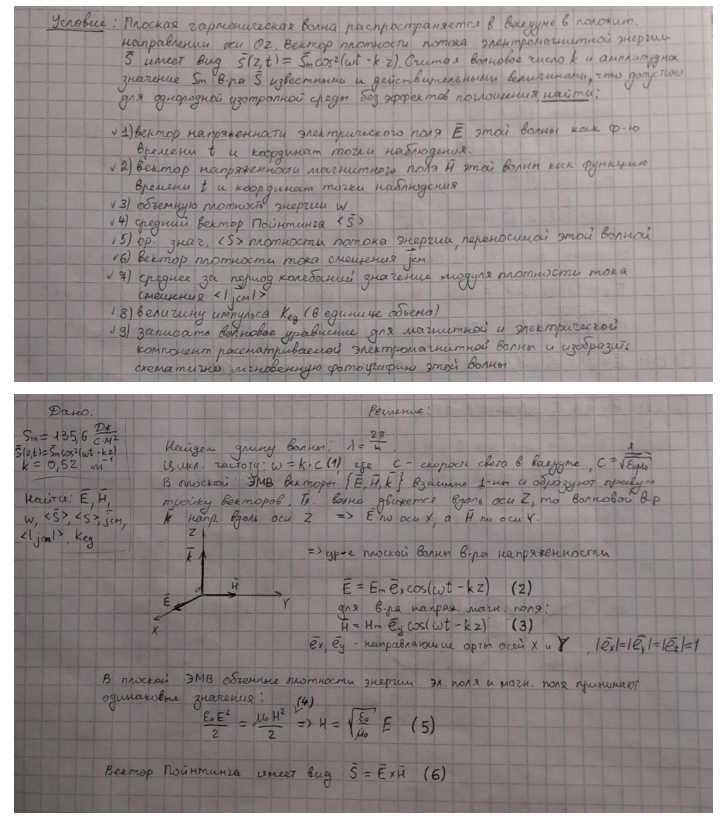 Условие: Плоская гармоническая волна распространяется в вакууме в положит.
направлении оси Oz. Вектор плотности потока электромагнитной энергии
S̄ имеет вид s̄(z,t) = S̄m cos²(ωt - kz). Считая волновое число k и амплитудное
значение Sm в-ра S̄ известными и действительными величинами, что допустимо
для однородной изотропной среды без эффектов поглощения, найти:
✓ 1) вектор напряженности электрического поля Ē этой волны как ф-ю
времени t и координат точки наблюдения.
✓ 2) вектор напряженности магнитного поля H̄ этой волны как функцию
времени t и координат точки наблюдения
✓ 3) объемную плотность энергии w
✓ 4) средний вектор Пойнтинга <S̄>
✓ 5) ср. знач. <S> плотности потока энергии, переносимой этой волной
✓ 6) вектор плотности тока смещения j̄см
✓ 7) среднее за период колебаний значение модуля плотности тока
смещения <|j̄см|>
✓ 8) величину импульса Kед (в единице объема)
✓ 9) записать волновое уравнение для магнитной и электрической
компонент рассматриваемой электромагнитной волны и изобразить
схематично мгновенную фотографию этой волны.
Дано:
Sm = 135,6 Дж/см²
S̄(z,t) = S̄m cos²(ωt - kz)
k = 0,52 м⁻¹
Найти: Ē, H̄,
w, <S̄>, <S>, j̄см,
<|jсм|>, Kед
Решение:
Найдем длину волны: λ = 2π/k.
Цикл. частоту: ω = k·c (1), где c - скорость света в вакууме, c = 1/√(ε₀μ₀)
В плоской ЭМВ векторы {Ē, H̄, k̄} взаимно ⊥-ны и образуют правую
тройку векторов. Т.к. волна движется вдоль оси Z, то волновой в-р
k̄ напр. вдоль оси Z => Ē по оси X, а H̄ по оси Y.
Z
k̄
0
H̄
Ē
Y
X
=> ур-е плоской волны в-ра напряженности
Ē = Em ēx cos(ωt - kz) (2)
для в-ра напряж. магн. поля:
H̄ = Hm ēy cos(ωt - kz) (3)
ēx, ēy - направляющие орты осей X и Y, |ēx|=|ēy|=|ēz|=1
В плоской ЭМВ объемные плотности энергии эл. поля и магн. поля принимают
одинаковые значения:
ε₀E²/2 = μ₀H²/2 (4) => H = √(ε₀/μ₀) E (5)
Вектор Пойнтинга имеет вид S̄ = Ē×H̄ (6)